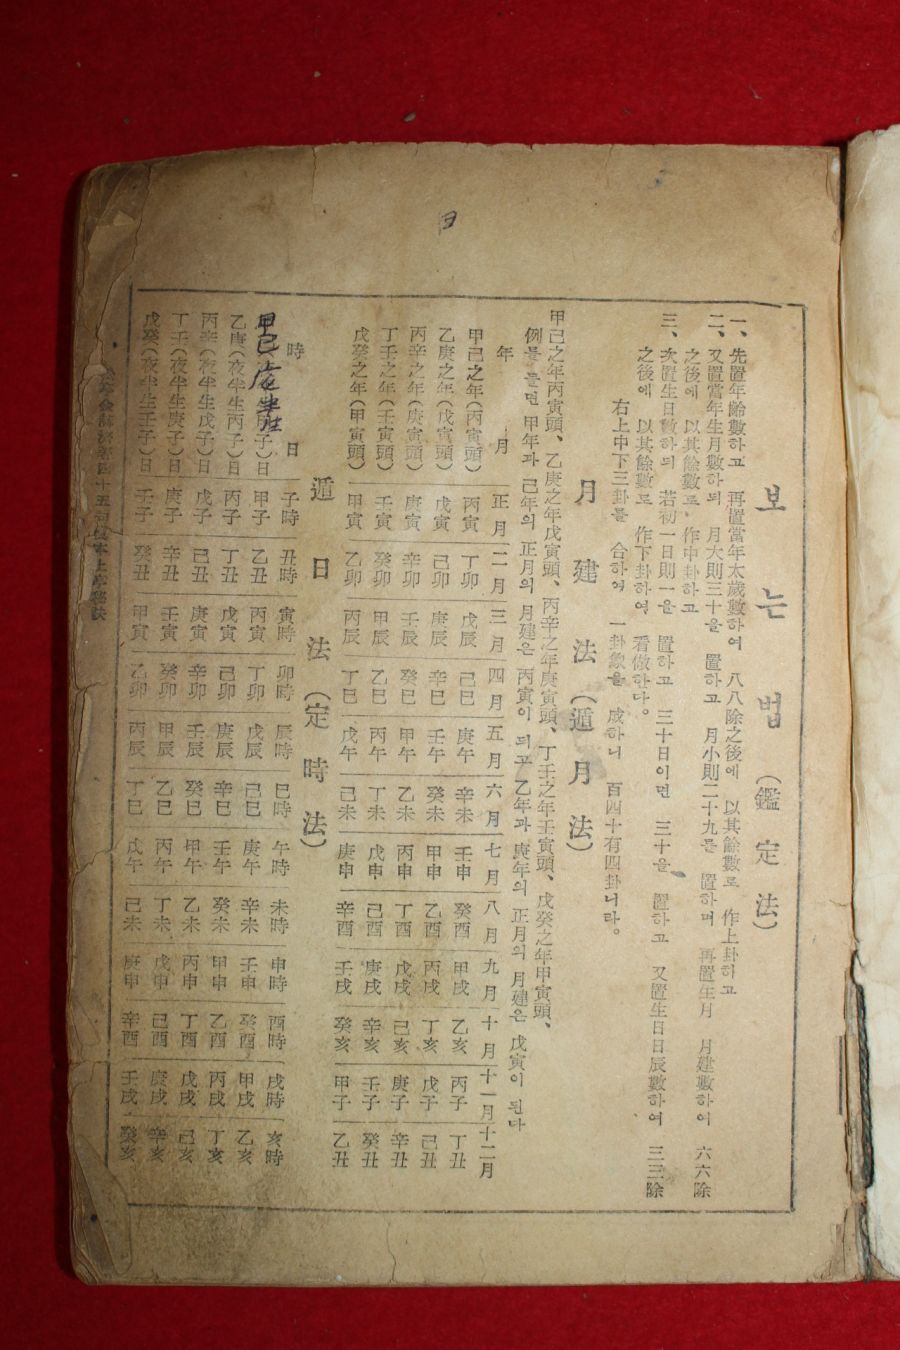 보는법(鑑定法)
一、先置年齡數하고 再置當年太歲數하여 八八除之後에 以其餘數로 作上卦하고
二、又置當年生月數하되 月大則三十을 置하고 月小則二十九를 置하며 再置生月 月建數하여 六六除
之後에 以其餘數로 作中卦하고
三、次置生日數하되 若初一日則一을 置하고 三十日이면 三十을 置하고 又置生日日辰數하여 三三除
之後에 以其餘數로 作下卦하여 看做한다。
右上中下三卦를 合하여 一卦象을 成하니 百四十有四卦니라。
月建法(遁月法)
甲己之年丙寅頭、乙庚之年戊寅頭、丙辛之年庚寅頭、丁壬之年壬寅頭、戊癸之年甲寅頭、
例를 들면 甲年과 己年의 正月의 月建은 丙寅이 되고 乙年과 庚年의 正月의 月建은 戊寅이 된다
年 月 正月 二月 三月 四月 五月 六月 七月 八月 九月 十月 十一月 十二月
甲己之年(丙寅頭) 丙寅 丁卯 戊辰 己巳 庚午 辛未 壬申 癸酉 甲戌 乙亥 丙子 丁丑
乙庚之年(戊寅頭) 戊寅 己卯 庚辰 辛巳 壬午 癸未 甲申 乙酉 丙戌 丁亥 戊子 己丑
丙辛之年(庚寅頭) 庚寅 辛卯 壬辰 癸巳 甲午 乙未 丙申 丁酉 戊戌 己亥 庚子 辛丑
丁壬之年(壬寅頭) 壬寅 癸卯 甲辰 乙巳 丙午 丁未 戊申 己酉 庚戌 辛亥 壬子 癸丑
戊癸之年(甲寅頭) 甲寅 乙卯 丙辰 丁巳 戊午 己未 庚申 辛酉 壬戌 癸亥 甲子 乙丑
遁日法(定時法)
時 日 子時 丑時 寅時 卯時 辰時 巳時 午時 未時 申時 酉時 戌時 亥時
甲己 子)日 甲子 乙丑 丙寅 丁卯 戊辰 己巳 庚午 辛未 壬申 癸酉 甲戌 乙亥
乙庚(夜半生丙子)日 丙子 丁丑 戊寅 己卯 庚辰 辛巳 壬午 癸未 甲申 乙酉 丙戌 丁亥
丙辛(夜半生戊子)日 戊子 己丑 庚寅 辛卯 壬辰 癸巳 甲午 乙未 丙申 丁酉 戊戌 己亥
丁壬(夜半生庚子)日 庚子 辛丑 壬寅 癸卯 甲辰 乙巳 丙午 丁未 戊申 己酉 庚戌 辛亥
戊癸(夜半生壬子)日 壬子 癸丑 甲寅 乙卯 丙辰 丁巳 戊午 己未 庚申 辛酉 壬戌 癸亥